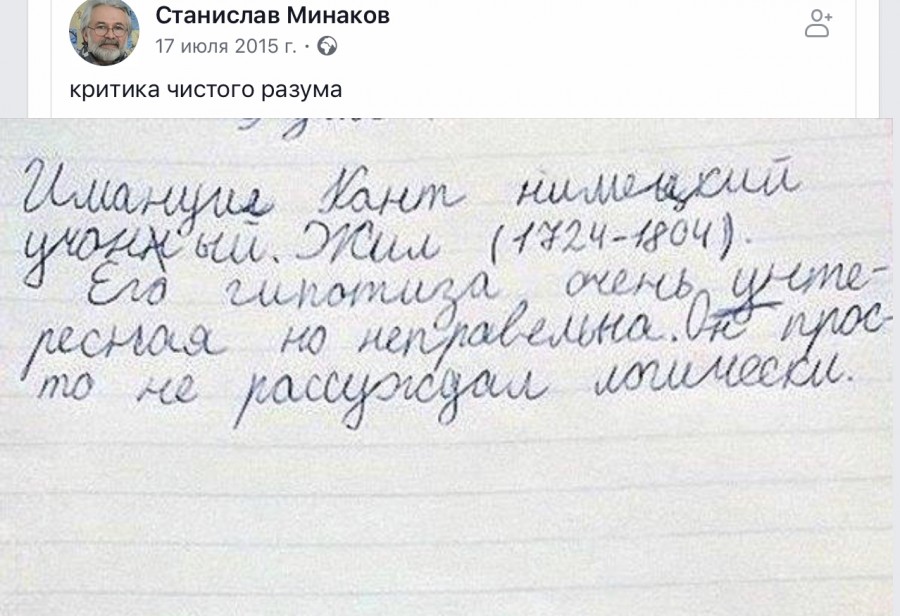 Станислав Минаков
17 июля 2015 г. ·
критика чистого разума
Имануил Кант нимецкий
учонный. Жил (1724-1804).
Его гипотиза очень унте-
ресная но неправельна. Он прос-
то не рассуждал логически.